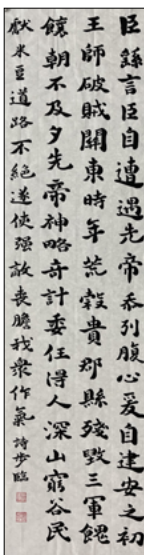 臣繇言臣自遭遇先帝忝列腹心爰自建安之初
王師破賊關東時年荒穀貴郡縣殘毀三軍餽
饟朝不及夕先帝神略奇計委任得人深山窮谷民
獻米豆道路不絕遂使强敵喪膽我衆作氣 詩步臨